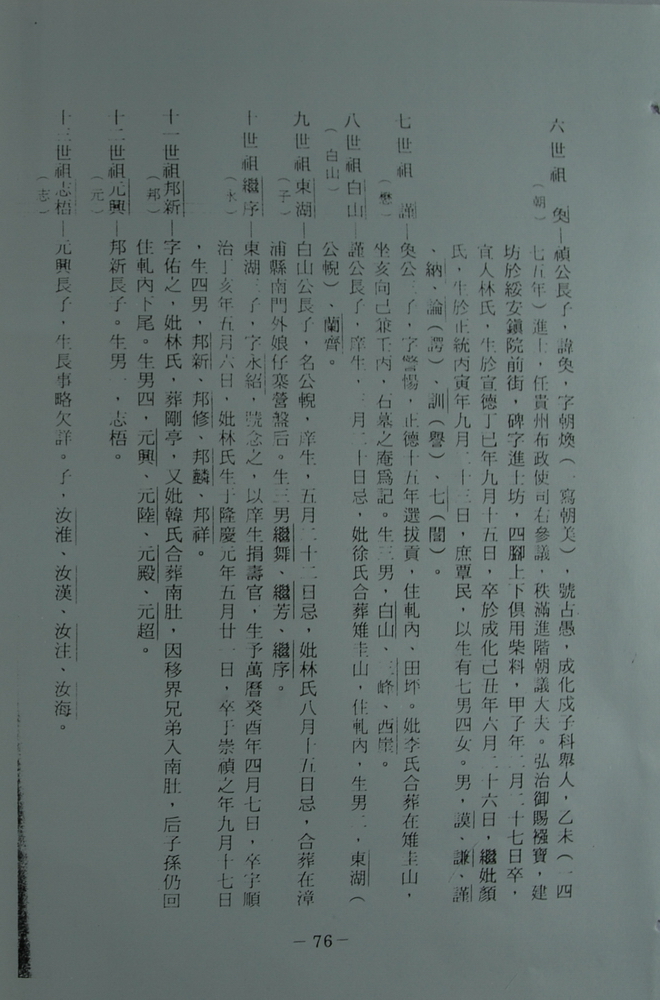 六世祖 奐—禎公長子,諱奐,字朝煥(一寫朝美),號占愚,成化戍子科舉人,乙未(一四
(朝)
七五年)進士,任貴州布政使司右參議,秩滿進階朝議大夫。弘治御賜襁寶,建
坊於綏安鎮院前街,碑字進士坊,四腳上下俱用柴料,甲子年二月二十七日卒,
宜人林氏,生於宣德丁巳年九月十五日,卒於成化己丑年六月二十六日,繼妣顏
氏,生於正統丙寅年九月二十三日,庶覃民,以生有七男四女。男,謨、謙、謹
、納、論(諤)、訓(譽)、七(誾)。
七世祖 謹—奐公三子,字警惕,正德十五年選拔貢,住軋內、田坏。妣李氏合葬在雉圭山,
(懋)
坐亥向己兼壬丙,石墓之庵爲記。生三男,白山、三峰、西崖。
八世祖白山—謹公長子,庠生,二月二十日忌,妣徐氏合葬雉圭山,住軋內,生男二,東湖(
(白山)
公輗)、蘭齊。
九世祖東湖—白山公長子,名公輗,庠生,五月二十二日忌,妣林氏八月十五日忌,合葬在漳
(子)
浦縣南門外娘仔寨營盤后。生三男繼舞、繼芳、繼序。
十世祖繼序—東湖三子,字永紹,號念之,以庠生捐壽官,生予萬曆癸酉年四月七日,卒字順
(永)
治丁亥年五月六日,妣林氏生于隆慶元年五月廿一日,卒于崇禎之年九月十七日
,生四男,邦新、邦修、邦麟、邦祥。
十一世祖邦新—字佑之,妣林氏,葬剛亭,又妣韓氏合葬南肚,因移界兄弟入南肚,后子孫仍回
(邦)
住軋內下尾。生男四,元興、元陸、元殿、元超。
十二世祖元興—邦新長子。生男一,志梧。
(元)
十三世祖志梧—元興長子,生長事略欠詳。子,汝淮、汝漢、汝注、汝海。
(志)
—76—